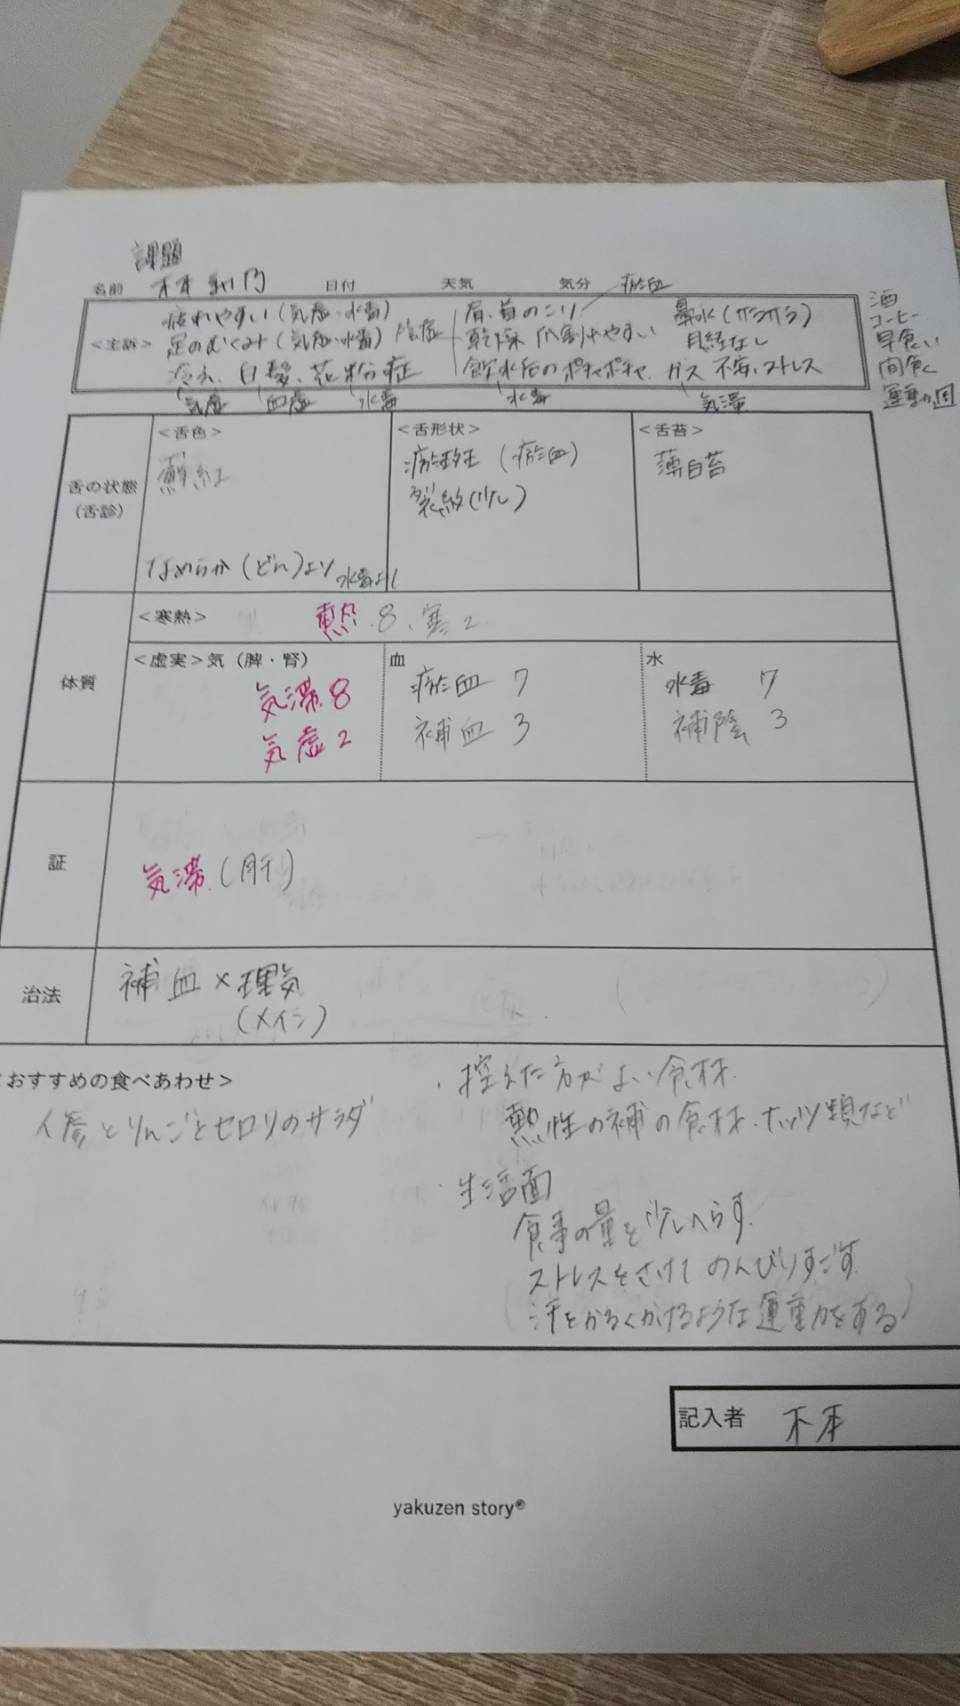 課題
名前 日付 天気 気分 瘀血
疲れやすい(気虚・水毒) 肩、首のこり 鼻水(サラサラ) 酒
<主訴> 足のむくみ(気虚・水毒) 陰虚 乾燥 爪割れやすい 月経なし コーヒー
冷え、白髪、花粉症 飲水后のポチャポチャ ガス 不安、ストレス 早食い
気虚 血虚 水毒 水毒 気滞 間食
運動 週
舌の状態
(舌診)
<舌色> <舌形状> <舌苔>
鮮紅 瘀斑 (瘀血) 薄白苔
裂紋(少し)
なめらか(どん)より 水毒より
体質
<寒熱> 熱 8、寒 2
<虚実>気(脾・腎) 血 水
気滞 8 瘀血 7 水毒 7
気虚 2 補血 3 補陰 3
証
気滞(肝)
治法
補血×理気
(メイン)
おすすめの食べあわせ>
人参とりんごとセロリのサラダ
・控えた方がよい食材
熱性の補の食材、ナッツ類など
・生活面
食事の量を少しへらす
ストレスをさけてのんびりすごす
(汗をかるくかけるような運動をする)
記入者 木本
yakuzen story®